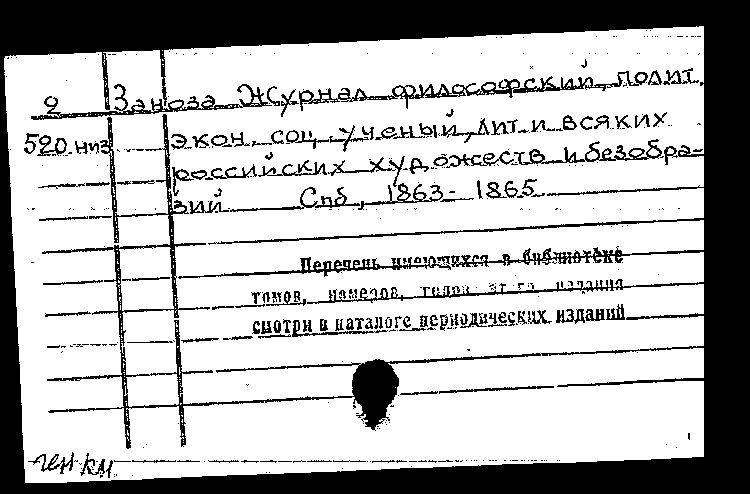 9 Заноза Журнал философский, полит.
520 низ экон, соц, ученый, лит. и всяких
российских художеств и безобра-
зий Спб, 1863- 1865
Перечень имеющихся в библиотеке
томов, номеров, годов этого издания
смотри в каталоге периодических изданий
ген км